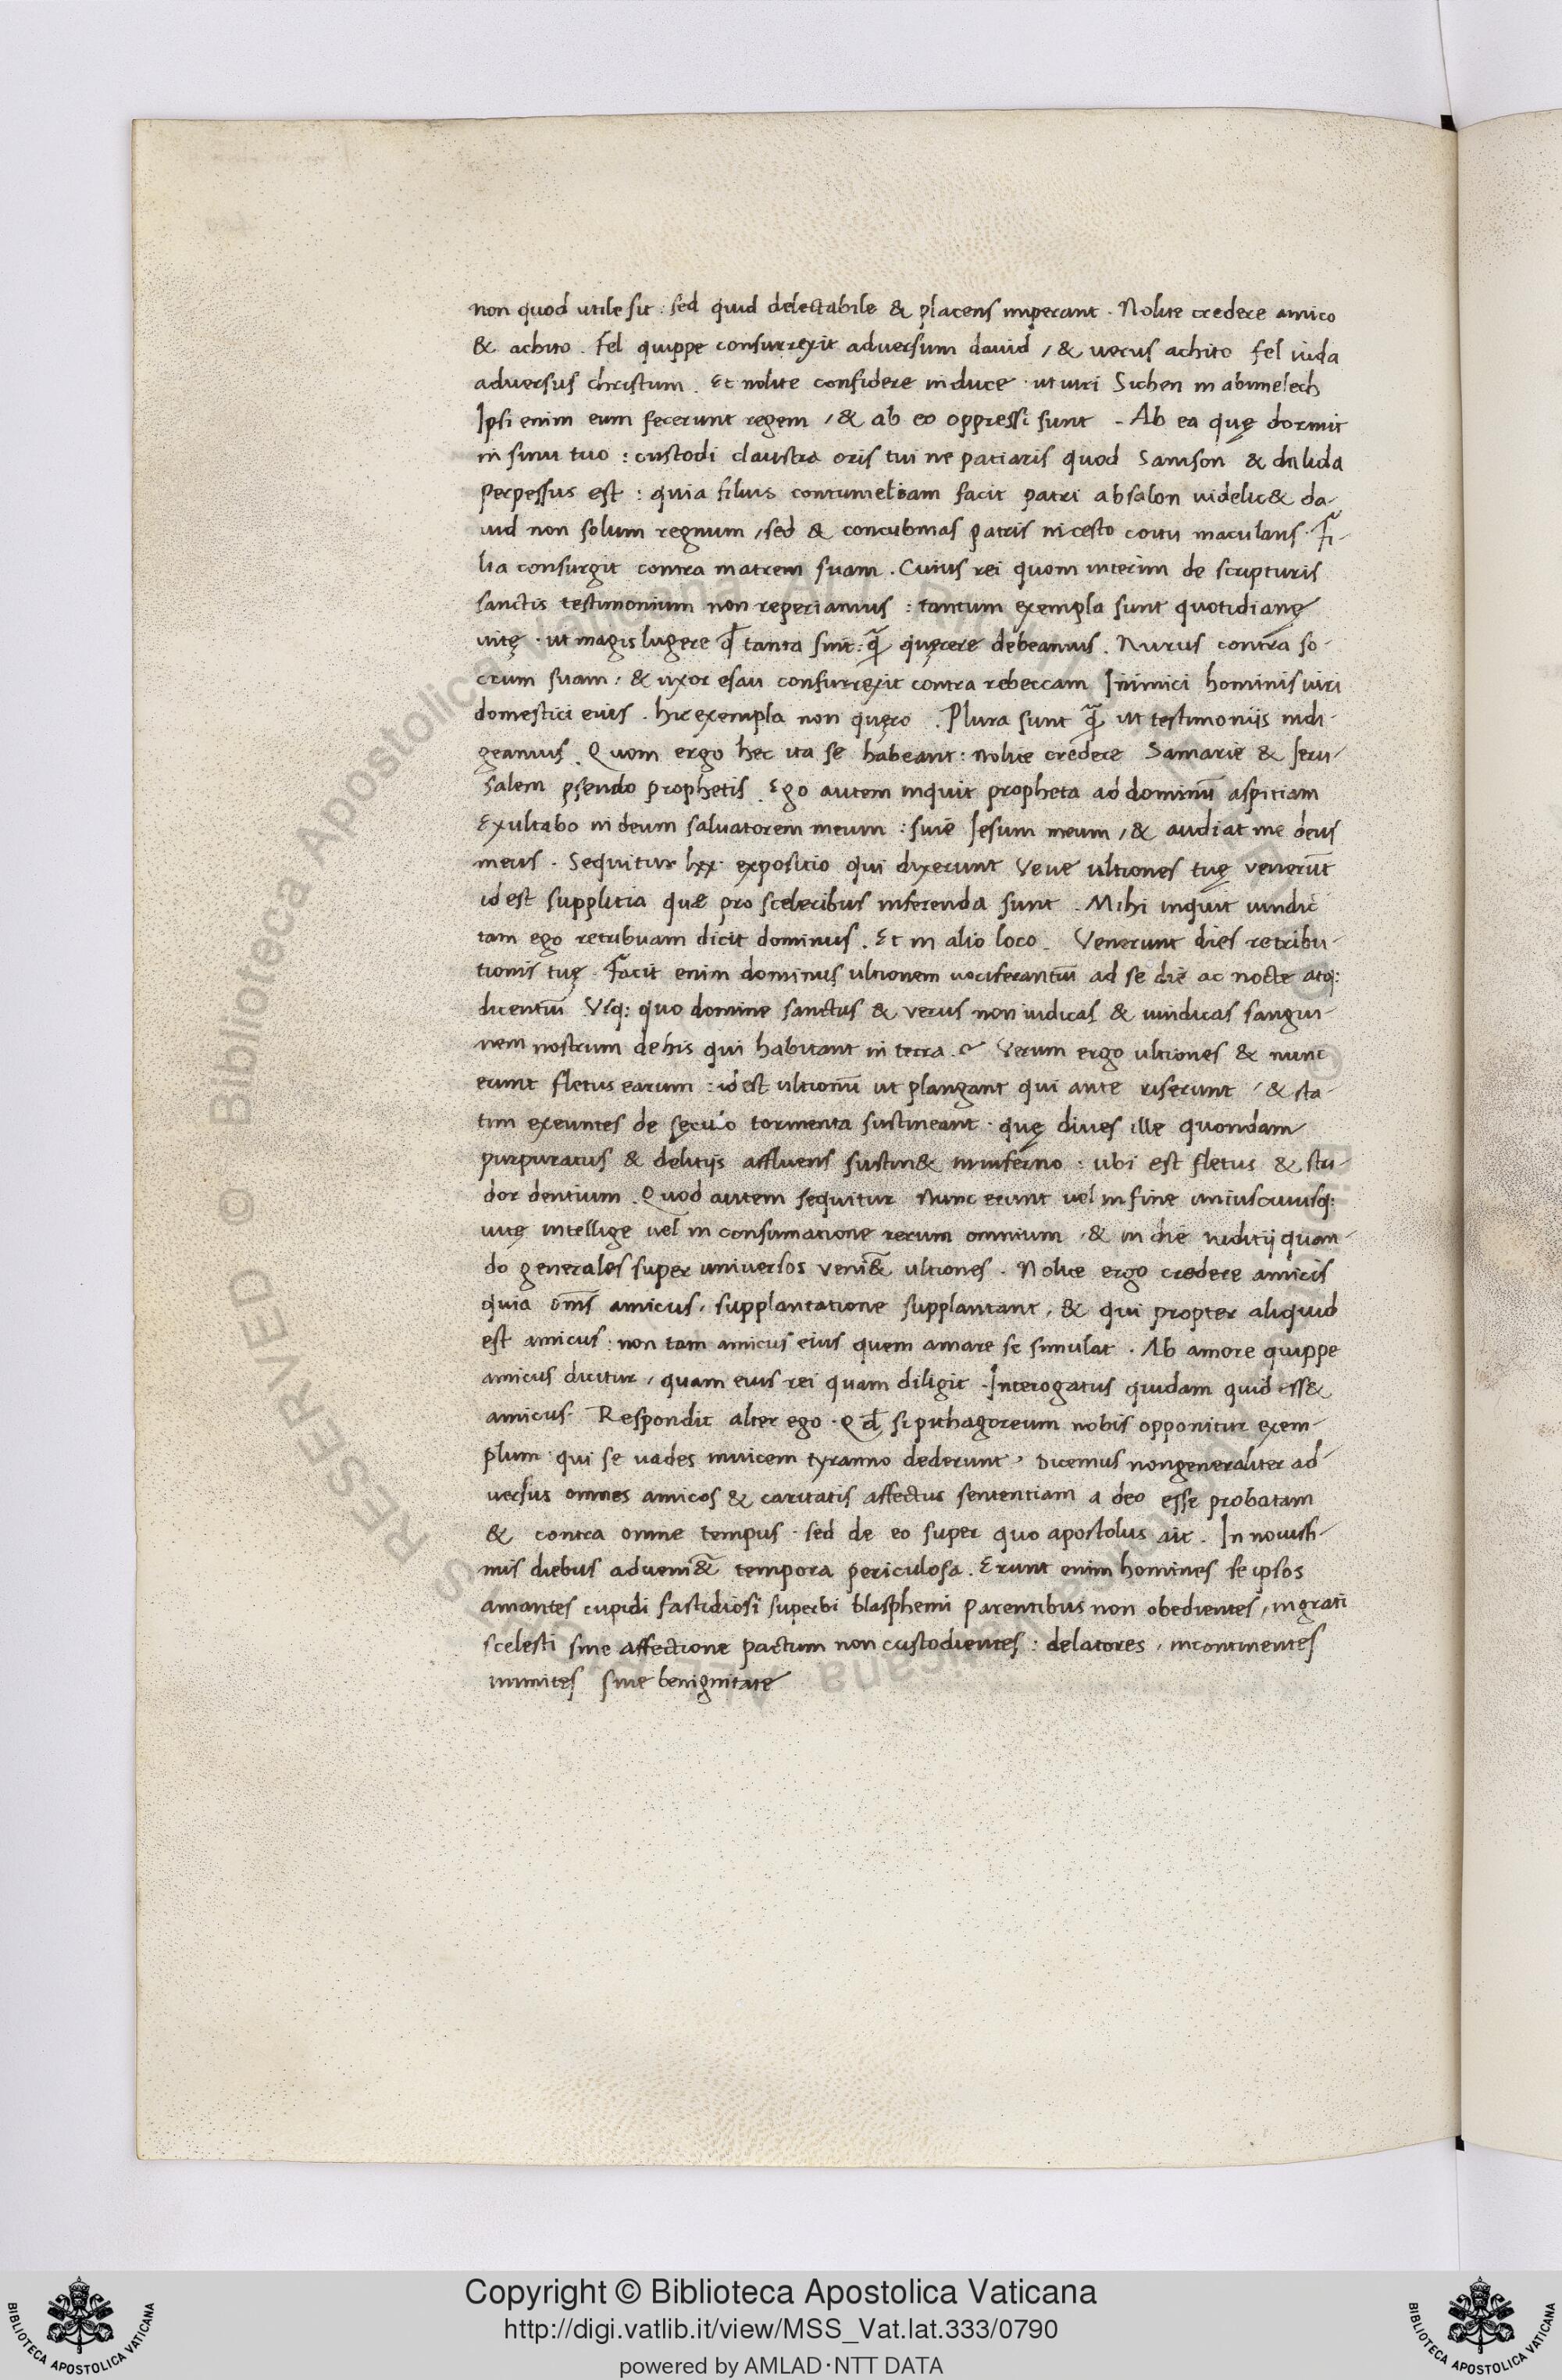 non quod utile sit : sed quid delectabile & placens imperant . Nolite credere amico
& achito . fel quippe consurrexit adversum dauid , & uerus achito fel iuda
adversus christum . Et nolite confidere in duce · ut uiri Sichen in abimelech
Ipsi enim eum fecerunt regem , & ab eo oppressi sunt . Ab ea quę dormit
in sinu tuo : custodi claustra oris tui ne patiaris quod Samson & dalida
perpessus est : quia filius contumeliam facit patri absalon uidelic& da-
uid non solum regnum , sed & concubinas patris incesto coitu maculans . Fi-
lia consurgit contra matrem suam . Cuius rei quom interim de scripturis
sanctis testimonium non reperiamus : tantum exempla sunt quotidianę
uitę · ut magis lugere ꝙ tanta sint : q̃ quęrere debeamus . Nurus contra so-
crum suam : & uxor esau consurrexit contra rebeccam Inimici hominis uiri
domestici eius . hic exempla non quęro . Plura sunt q̃ ut testimoniis indi-
geamus . Quom ergo hec ita se habeant : nolite credere Samarie & Ieru-
salem pseudo prophetis . Ego autem inquit propheta ad dominũ aspiciam
Exultabo in deum saluatorem meum : siue Iesum meum , & audiat me deus
meus . Sequitur lxx · expositio qui dixerunt Veue ultiones tuę venerũt
id est supplitia quæ pro sceleribus inferenda sunt . Mihi inquit uindic
tam ego retribuam dicit dominus . Et in alio loco . Venerunt dies retribu-
tionis tuę . Facit enim dominus ultionem uociferantiũ ad se die ac nocte atq:
dicentiũ Vsq: quo domine sanctus & verus non iudicas & uindicas sangui-
nem nostrum de his qui habitant in terra . Verum ergo ultiones & nunc
erunt fletus earum : id est ultionũ ut plangant qui ante riserunt , & sta-
tim exeuntes de sęculo tormenta sustineant · quę dives ille quondam
purpuratus & delitijs affluens sustin& in inferno : ubi est fletus & stri-
dor dentium . Quod autem sequitur Nunc erunt vel in fine uniuscuiusq:
uitę intellige vel in consumatione rerum omnium , & in die iuditij quan-
do generales super universos veni&̃ ultiones . Nolite ergo credere amicis
quia om̃s amicus , supplantatione supplantant , & qui propter aliquid
est amicus : non tam amicus eius quem amare se simulat . Ab amore quippe
amicus dicitur , quam eius rei quam diligit . Interogatus quidam quid ess&
amicus . Respondit alter ego . Qđ si pithagoreum nobis opponitur exem-
plum qui se uades inuicem tyranno dederunt , Dicemus non generaliter ad
versus omnes amicos & caritatis affectus sententiam a deo esse probatam
& contra omne tempus · sed de eo super quo apostolus ait . In nouissi-
mis diebus adveni&̃ tempora periculosa . Erunt enim homines se ipsos
amantes cupidi fastidiosi superbi blasphemi parentibus non obedientes , ingrati
scelesti sine affectione pactum non custodientes : delatores , incontinentes
inmites sine benignitate
© Biblioteca Apostolica Vaticana
Copyright © Biblioteca Apostolica Vaticana
http://digi.vatlib.it/view/MSS_Vat.lat.333/0790
powered by AMLAD·NTT DATA
BIBLIOTECA APOSTOLICA VATICANA
BIBLIOTECA APOSTOLICA VATICANA